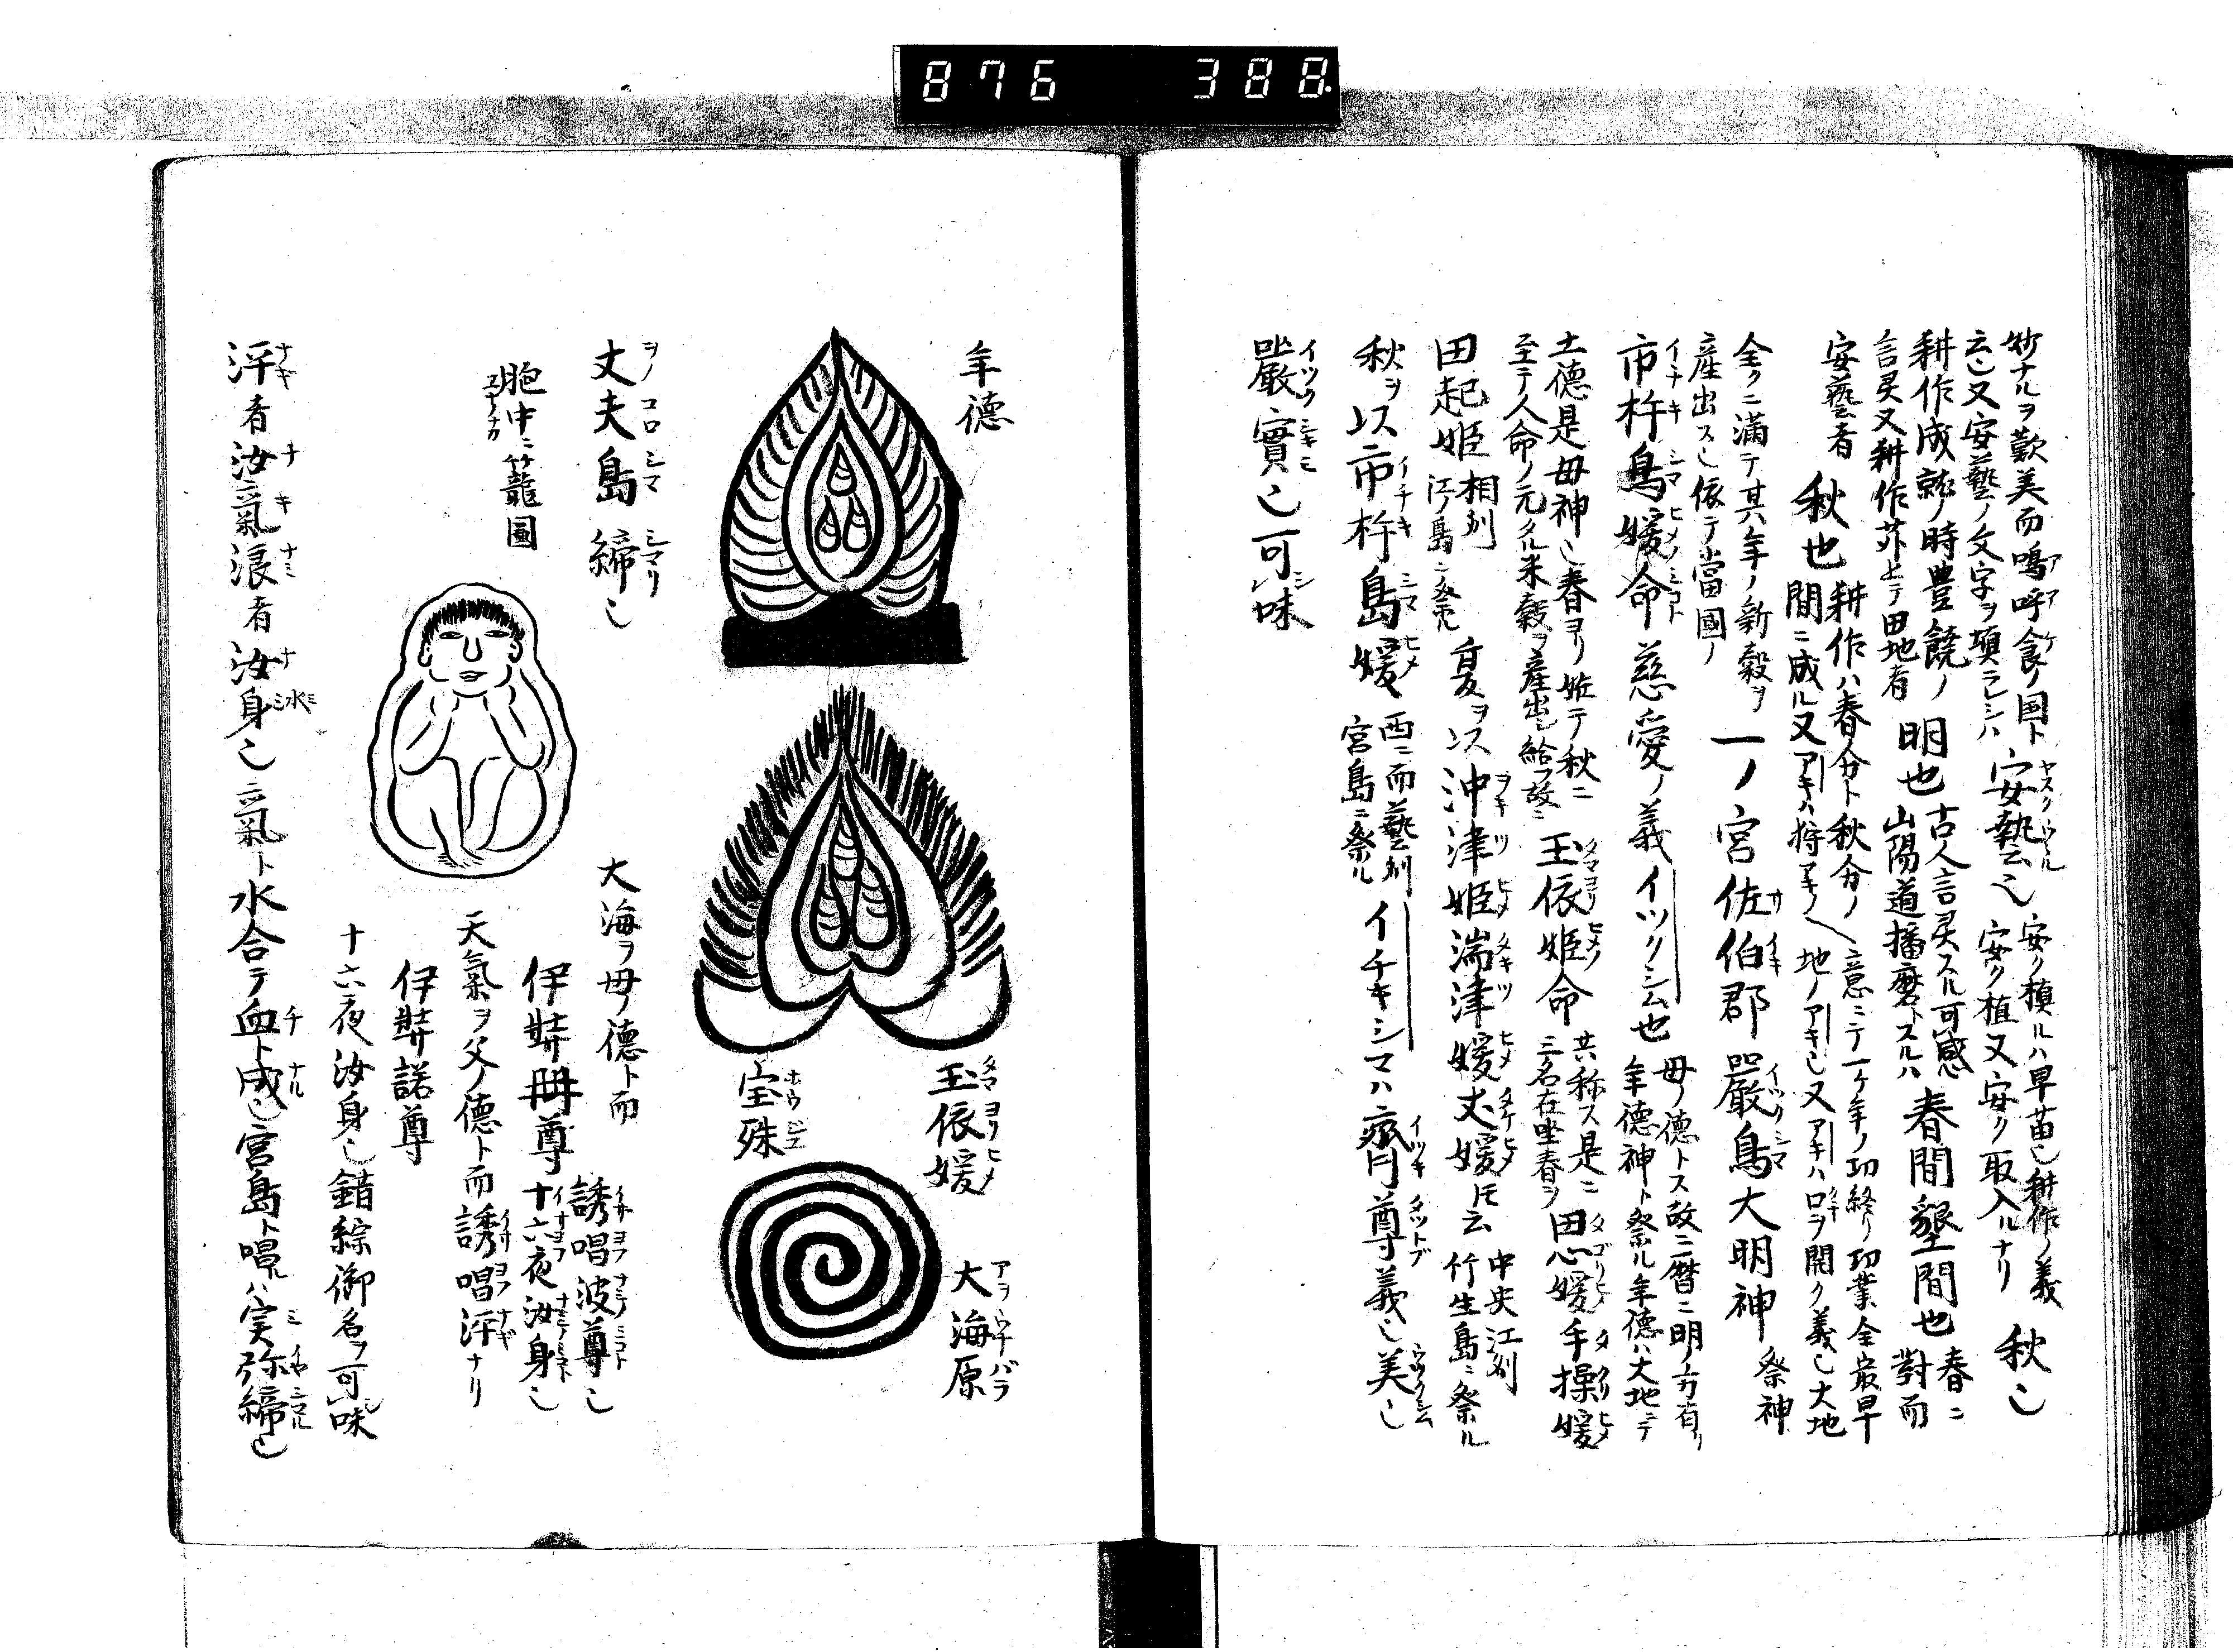 876 388
妙ナルヲ歎美而鳴呼食ノ国ト
云乄又安藝ノ文字ヲ填ラレシハ
安藝乄
安ク植ルハ早苗乄耕作ノ義
安ク植又安ク取入ルナリ
秋乄
耕作成就ノ時豊饒ノ
言灵又耕作
田地者
明也
古人言灵スル可感
山陽道播磨トスルハ
春間墾間也
春ニ
對而
安藝者
秋也
耕作ハ春分ト秋分ノ
間ニ成ル又アキハ
意ニテ一ケ年ノ功終リ功業全最早
地ノアキ乄又アキハ口ヲ開ク義乄大地
全クニ満テ其年ノ新穀ヲ
産出ス乄依テ當國ノ
一ノ宮佐伯郡嚴島大明神
祭神
市杵島媛命
慈愛ノ義イツクシム也
母ノ德トス故ニ暦ニ明ノ方有リ
年德神ト祭ル年德ハ大地ニテ
土德是母神乄春ヨリ始テ秋ニ
至テ人命ノ元タル米穀ヲ産出シ給フ故ニ
玉依姫命
共称ス是ニ
三名在坐春ヲ
田心媛手操媛
田起姫
相刕
江ノ島ニ祭ル
夏ヲ以沖津姫湍津媛丈媛トモ云
中央江刕
竹生島ニ祭ル
秋ヲ以市杵島媛
西ニ而藝刕
宮島ニ祭ル
イチキシマハ齋尊義乄美乄
嚴實乄可味
年德
玉依媛
宝殊
大海原
丈夫島締乄
胞中ニ籠圖
大海ヲ母ノ德ト而
誘唱波尊乄
伊弉冊尊
十六夜汝身乄
天氣ヲ父ノ德ト而誘唱浮ナリ
伊弉諾尊
十六夜汝身乄錯綜御名ヲ可味
浮者汝氣浪者汝身乄氣ト水合テ血ト成乄宮島ト唱ルハ実弥締乄